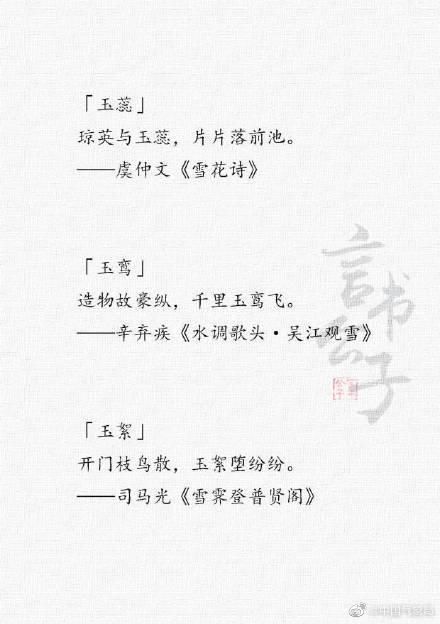 「玉蕊」
琼英与玉蕊，片片落前池。
——虞仲文《雪花诗》
「玉鸾」
造物故豪纵，千里玉鸾飞。
——辛弃疾《水调歌头·吴江观雪》
「玉絮」
开门枝鸟散，玉絮堕纷纷。
——司马光《雪霁登普贤阁》
言书公子
@中国气象局